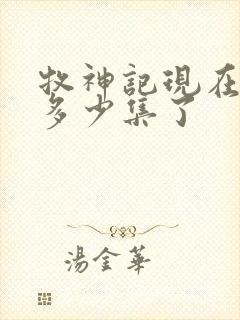 牧神記現在
多少集了
湯金華